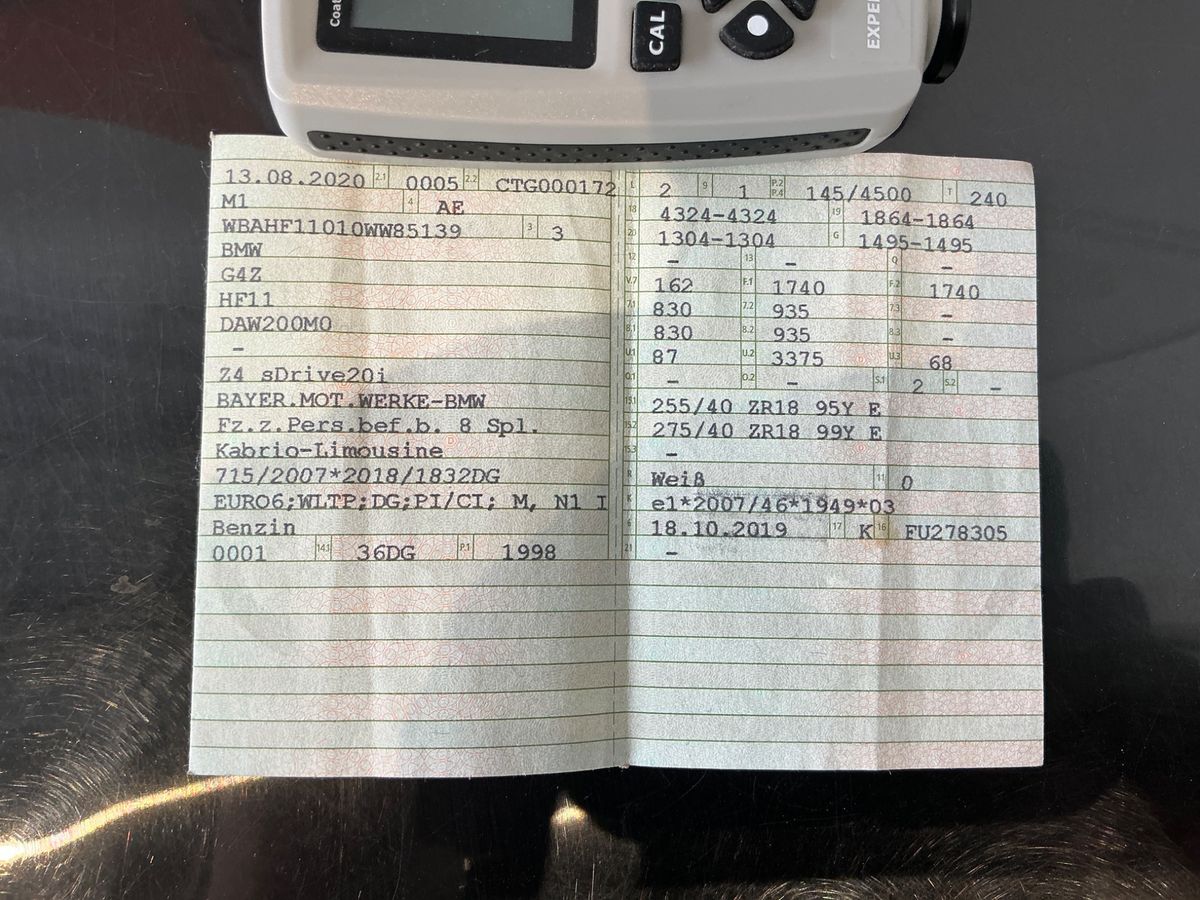 Coat
CAL
EXPE
13.08.2020 2.1 0005 2.2 CTG000172
M1 4 AE
WBAHF11010WW85139 3 3
BMW
G4Z
HF11
DAW200M0
–
Z4 sDrive20i
BAYER.MOT.WERKE-BMW
Fz.z.Pers.bef.b. 8 Spl.
Kabrio-Limousine
715/2007*2018/1832DG
EURO6;WLTP;DG;PI/CI; M, N1 I
Benzin
0001 14.1 36DG P.1 1998
L 2 9 1 P.2 P.4 145/4500 T 240
18 4324-4324 19 1864-1864
20 1304-1304 G 1495-1495
12 – 13 – Q –
V.7 162 F.1 1740 F.2 1740
7.1 830 7.2 935 7.3 –
8.1 830 8.2 935 8.3 –
U.1 87 U.2 3375 U.3 68
O.1 – O.2 – S.1 2 S.2 –
15.1 255/40 ZR18 95Y E
15.2 275/40 ZR18 99Y E
15.3 –
R Weiß 11 0
K e1*2007/46*1949*03
6 18.10.2019 17 K 16 FU278305
21 –